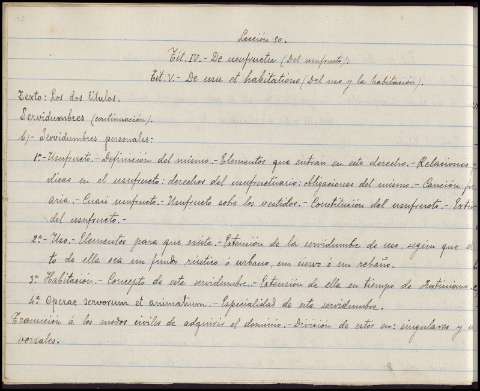 Lección 50.
Tít. IV.- De usufructu (Del usufructo).
Tít. V.- De usu et habitatione (Del uso y la habitación).
Texto: Los dos títulos.
Servidumbres (continuación).
b)- Servidumbres personales:
1º- Usufructo.- Definición del mismo.- Elementos que entran en este derecho.- Relaciones
dicas en el usufructo: derechos del usufructuario: obligaciones del mismo.- Caución
aria.- Cuasi usufructo.- Usufructo sobre los vestidos.- Constitución del usufructo.-
del usufructo.-
2º- Uso.- Elementos para que exista.- Extensión de la servidumbre de uso, según que
to de ella sea un fundo rústico ó urbano, un siervo ó un rebaño.
3º Habitación.- Concepto de esta servidumbre.- Extensión de ella en tiempo de Justiniano.
4º Operae servorum et animalium.- Especialidad de esta servidumbre.
Transición á los modos civiles de adquirir el dominio.- División de estos en: singulares y
versales.